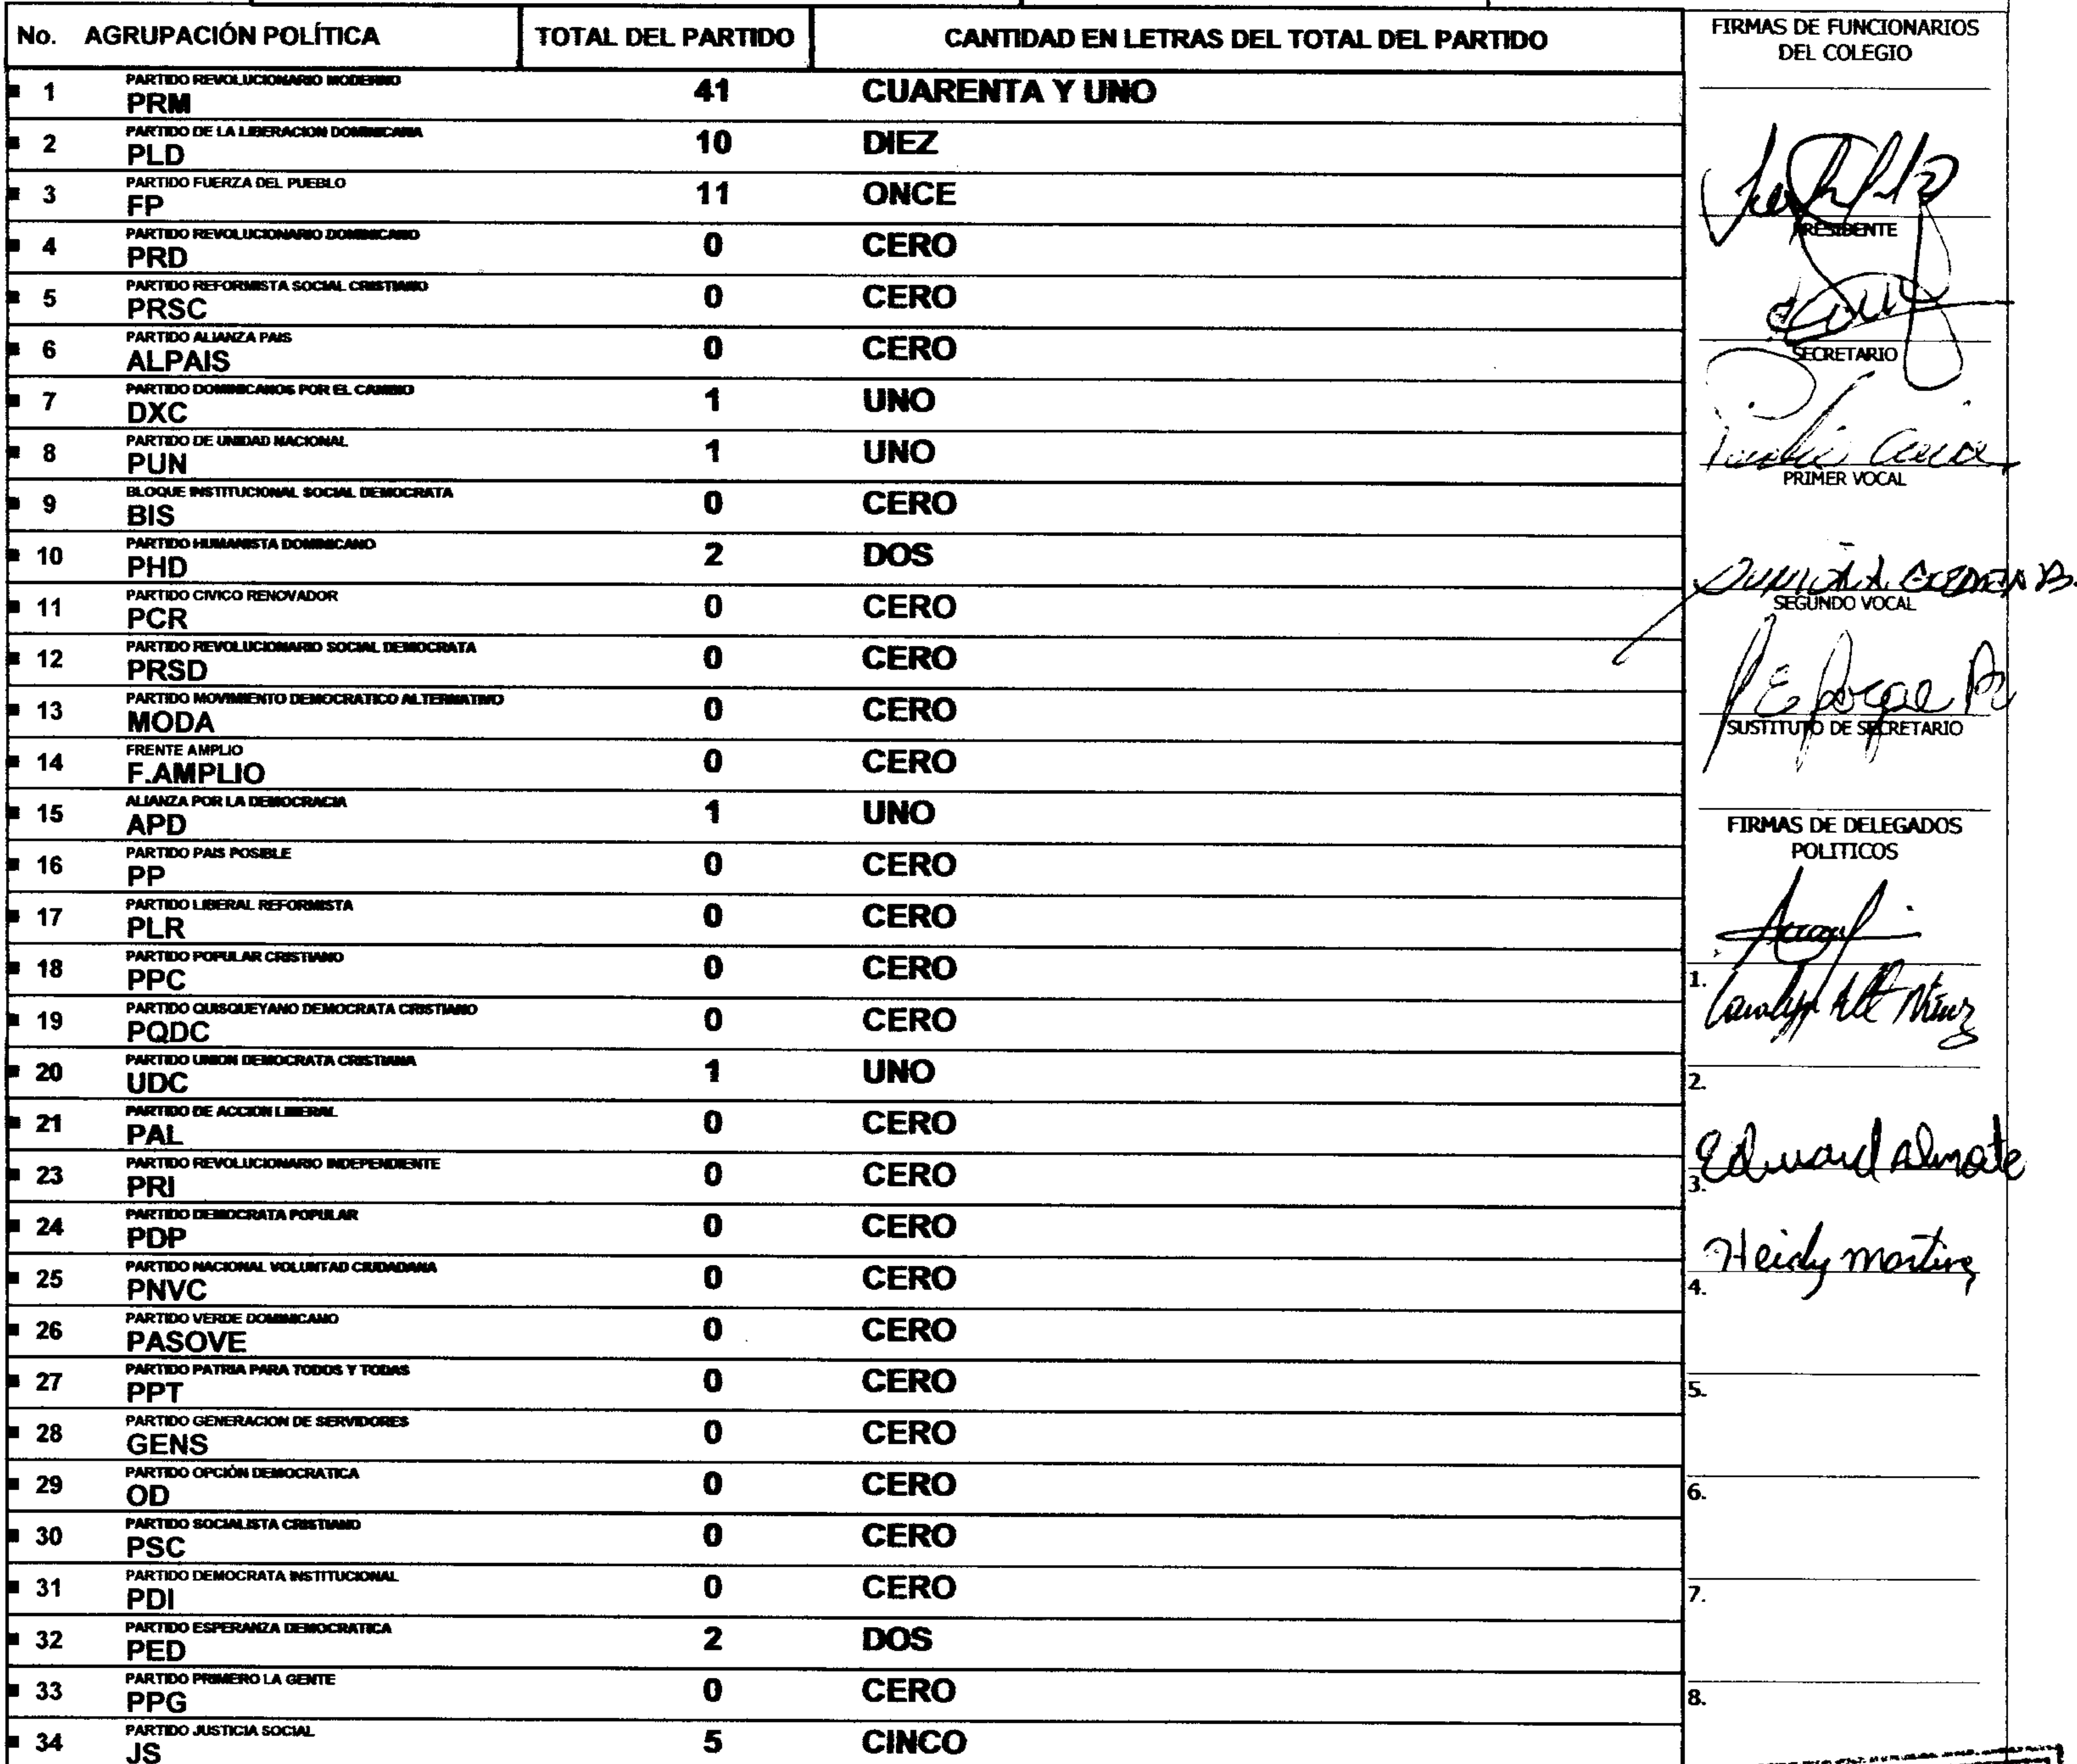 No. AGRUPACIÓN POLÍTICA TOTAL DEL PARTIDO CANTIDAD EN LETRAS DEL TOTAL DEL PARTIDO
1 PARTIDO REVOLUCIONARIO MODERNO
PRM 41 CUARENTA Y UNO
2 PARTIDO DE LA LIBERACION DOMINICANA
PLD 10 DIEZ
3 PARTIDO FUERZA DEL PUEBLO
FP 11 ONCE
4 PARTIDO REVOLUCIONARIO DOMINICANO
PRD 0 CERO
5 PARTIDO REFORMISTA SOCIAL CRISTIANO
PRSC 0 CERO
6 PARTIDO ALIANZA PAIS
ALPAIS 0 CERO
7 PARTIDO DOMINICANOS POR EL CAMBIO
DXC 1 UNO
8 PARTIDO DE UNIDAD NACIONAL
PUN 1 UNO
9 BLOQUE INSTITUCIONAL SOCIAL DEMOCRATA
BIS 0 CERO
10 PARTIDO HUMANISTA DOMINICANO
PHD 2 DOS
11 PARTIDO CIVICO RENOVADOR
PCR 0 CERO
12 PARTIDO REVOLUCIONARIO SOCIAL DEMOCRATA
PRSD 0 CERO
13 PARTIDO MOVIMIENTO DEMOCRATICO ALTERNATIVO
MODA 0 CERO
14 FRENTE AMPLIO
F.AMPLIO 0 CERO
15 ALIANZA POR LA DEMOCRACIA
APD 1 UNO
16 PARTIDO PAIS POSIBLE
PP 0 CERO
17 PARTIDO LIBERAL REFORMISTA
PLR 0 CERO
18 PARTIDO POPULAR CRISTIANO
PPC 0 CERO
19 PARTIDO QUISQUEYANO DEMOCRATA CRISTIANO
PQDC 0 CERO
20 PARTIDO UNION DEMOCRATA CRISTIANA
UDC 1 UNO
21 PARTIDO DE ACCION LIBERAL
PAL 0 CERO
23 PARTIDO REVOLUCIONARIO INDEPENDIENTE
PRI 0 CERO
24 PARTIDO DEMOCRATA POPULAR
PDP 0 CERO
25 PARTIDO NACIONAL VOLUNTAD CIUDADANA
PNVC 0 CERO
26 PARTIDO VERDE DOMINICANO
PASOVE 0 CERO
27 PARTIDO PATRIA PARA TODOS Y TODAS
PPT 0 CERO
28 PARTIDO GENERACION DE SERVIDORES
GENS 0 CERO
29 PARTIDO OPCIÓN DEMOCRATICA
OD 0 CERO
30 PARTIDO SOCIALISTA CRISTIANO
PSC 0 CERO
31 PARTIDO DEMOCRATA INSTITUCIONAL
PDI 0 CERO
32 PARTIDO ESPERANZA DEMOCRATICA
PED 2 DOS
33 PARTIDO PRIMERO LA GENTE
PPG 0 CERO
34 PARTIDO JUSTICIA SOCIAL
JS 5 CINCO
FIRMAS DE FUNCIONARIOS
DEL COLEGIO
PRESIDENTE
SECRETARIO
PRIMER VOCAL
SEGUNDO VOCAL
SUSTITUTO DE SECRETARIO
FIRMAS DE DELEGADOS
POLITICOS
1.
2.
Edward
3.
Heidy
4.
5.
6.
7.
8.